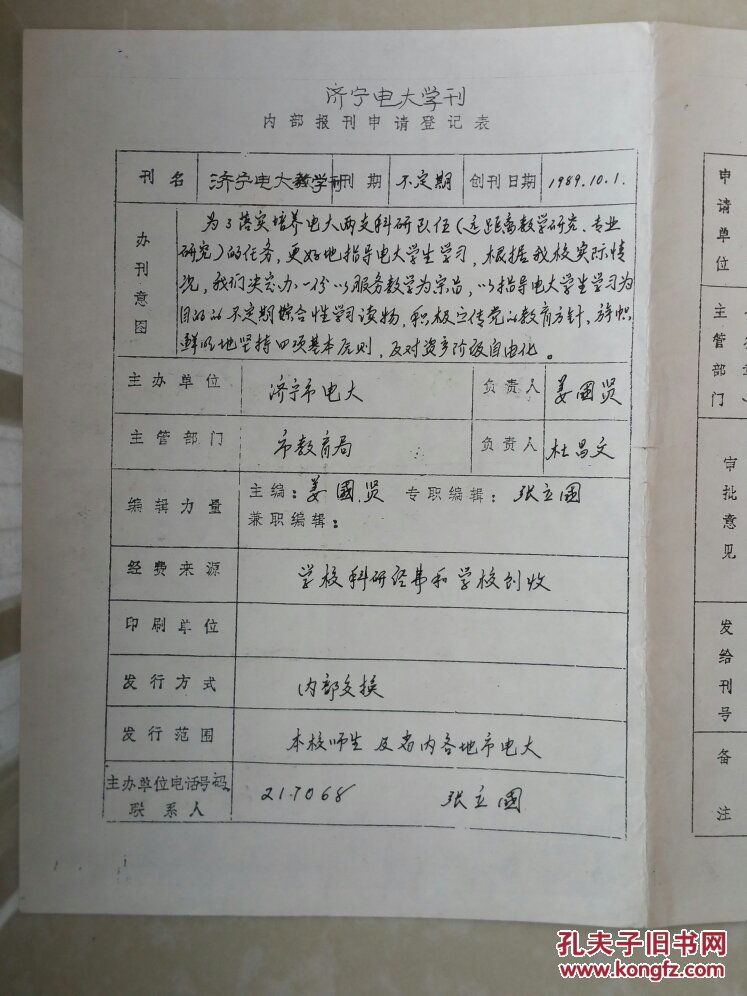 济宁电大学刊
内部报刊申请登记表
刊名 济宁电大教学研 刊期 不定期 创刊日期 1989.10.1.
办刊意图
为了落实培养电大两支科研队伍(远距离教学研究、专业
研究)的任务,更好地指导电大学生学习,根据我校实际情
况,我们决定办一份以服务教学为宗旨,以指导电大学生学习为
目的的不定期综合性学习读物,积极宣传党的教育方针,旗帜
鲜明地坚持四项基本原则,反对资产阶级自由化。
主办单位 济宁市电大 负责人 姜國贤
主管部门 市教育局 负责人 杜昌文
编辑力量 主编:姜國贤 专职编辑:张立國
兼职编辑:
经费来源 学校科研经费和学校创收
印刷单位
发行方式 内部交换
发行范围 本校师生及省内各地市电大
主办单位电话号码 217068 张立國
联系人
申请单位
主管部门
审批意见
发给刊号
备注
孔夫子旧书网
www.kongfz.com